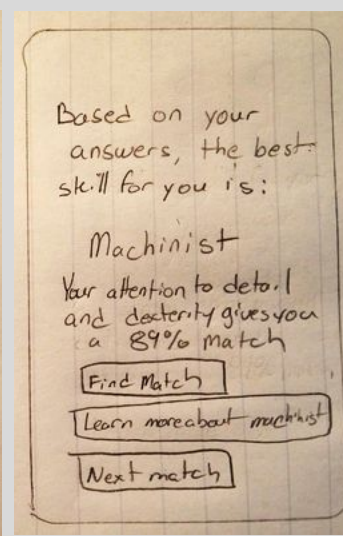 Based on your
answers, the best
skill for you is:
Machinist
Your attention to detail
and dexterity gives you
a 89% match
Find Match
Learn more about machinist
Next match